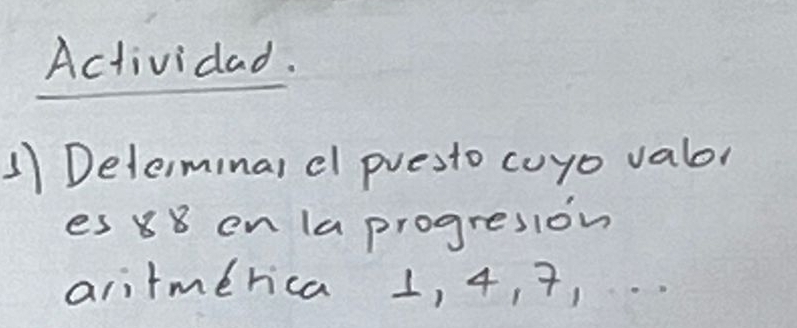 Actividad.
1) Determinar el puesto cuyo valor
es 88 en la progresión
aritmética 1, 4, 7, ...